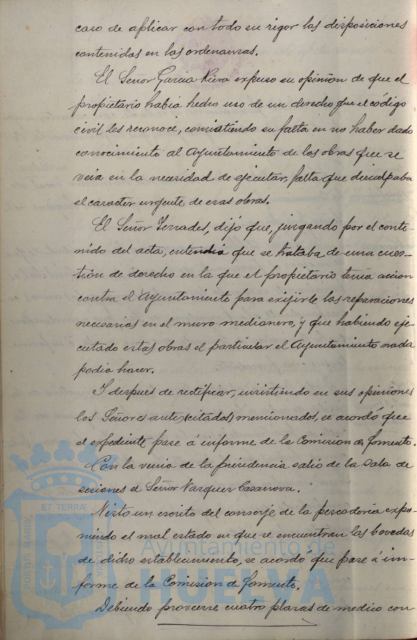 caso de aplicar con todo su rigor las disposiciones
contenidas en las ordenanzas.
El Señor Garcia Riva expuso su opinion de que el
propietario habia hecho uso de un derecho que el código
civil les reconoce, consistiendo su falta en no haber dado
conocimiento al Ayuntamiento de las obras que se
veia en la necesidad de ejecutar, falta que disculpaba
el caracter urgente de esas obras.
El Señor Terrades, dijo que, juzgando por el conte-
nido del acta, entendia que se trataba de una cues-
tion de derecho en la que el propietario tenia accion
contra el Ayuntamiento para exijirle las reparaciones
necesarias en el muro medianero, y que habiendo eje-
cutado estas obras el particular el Ayuntamiento nada
podia hacer.
I despues de rectificar, insistiendo en sus opiniones
los Señores ante (citados) mencionados, se acordó que
el expediente pase á informe de la Comision de fomento.
Con la venia de la presidencia salió de la Sala de
sesiones el Señor Vazquez Casanova.
Visto un escrito del conserje de la pescaderia expo-
niendo el mal estado en que se encuentran las bovedas
de dicho establecimiento, se acordo que pase á in-
forme de la Comision de fomento.
Debiendo proveerse cuatro plazas de medico con
PORTUS MARIS
ET TERRAE
Ayuntamiento de
HUELVA